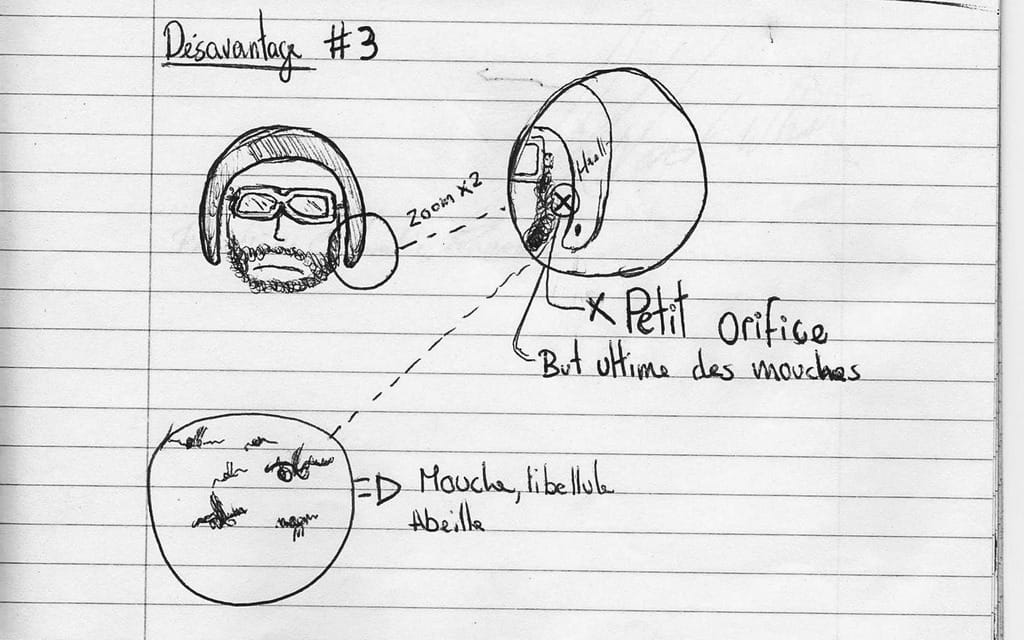 Désavantage #3
Zoom x2
X Petit orifice
But ultime des mouches
Mouche, libellule
Abeille